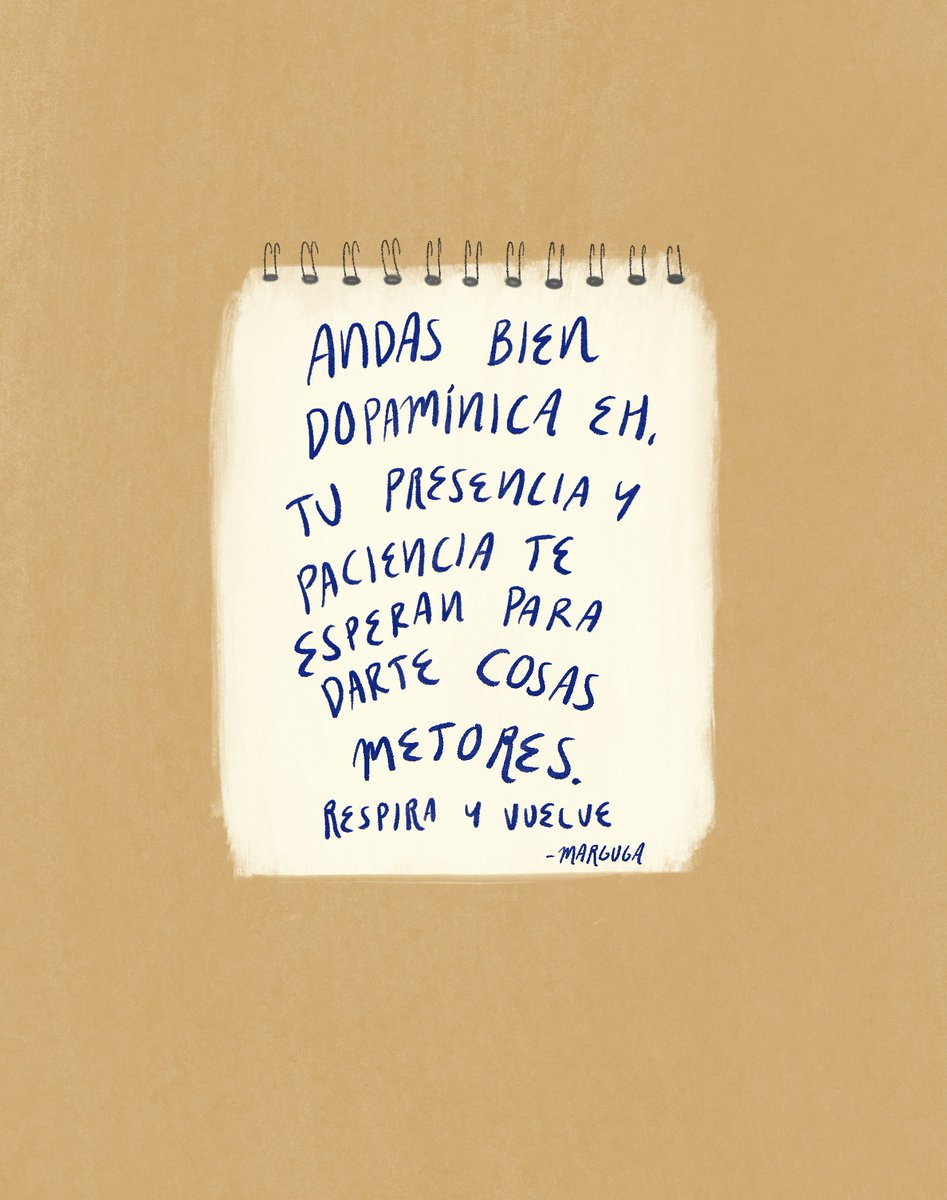 ANDAS BIEN
DOPAMÍNICA EH.
TU PRESENCIA Y
PACIENCIA TE
ESPERAN PARA
DARTE COSAS
MEJORES.
RESPIRA Y VUELVE
-MARGUGA